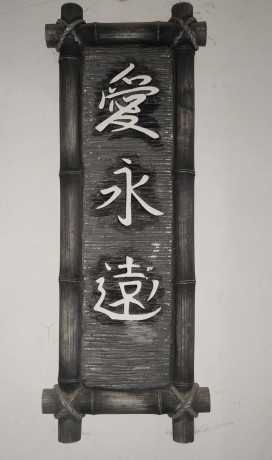 愛永遠